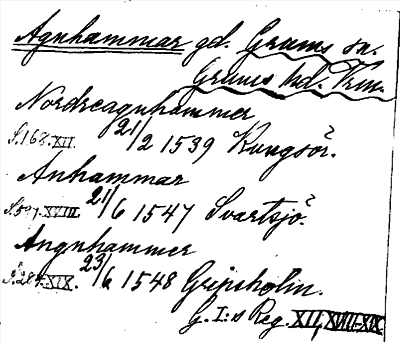 Agnhammar gd. Grums sn.
Grums hd. Vrm.
Nordreagnhammer
S.168.XII. 21/2 1539 Kungsör.
Anhammar
S.597.XVIII. 21/6 1547 Svartsjö.
Angnhammer
S.284.XIX. 23/6 1548 Gripsholm.
G. I:s Reg. XII, XVIII-XIX.